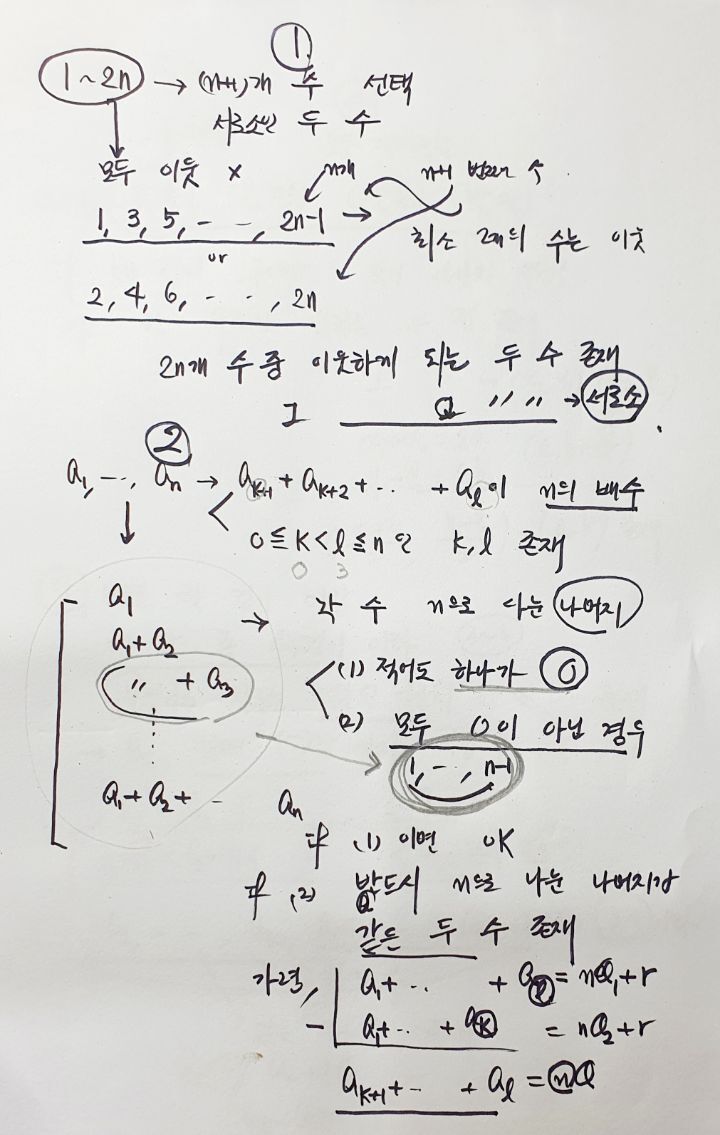 ①
1~2n → (n+1)개 수 선택
서로소인 두 수
모두 이웃 x
n개 n+1 번째 수
1, 3, 5, - - -, 2n-1 →
최소 2개의 수는 이웃
or
2, 4, 6, - - -, 2n
2n개 수 중 이웃하게 되는 두 수 존재
그 〃 〃 → 서로소.
②
a₁, --, aₙ → aₖ₊₁ + aₖ₊₂ + -- + aₗ이 n의 배수
0 ≦ k < l ≦ n 인 k, l 존재
0 3
a₁ → 각 수 n으로 나눈 나머지
a₁ + a₂
〃 + a₃ (1) 적어도 하나가 0
(2) 모두 0이 아닌 경우
1, --, n-1
a₁ + a₂ + - aₙ
if (1) 이면 OK
if (2) 반드시 n으로 나눈 나머지가
같은 두 수 존재
가령, a₁ + -- + aₗ = nQ₁ + r
- a₁ + -- + aₖ = nQ₂ + r
aₖ₊₁ + -- + aₗ = nQ